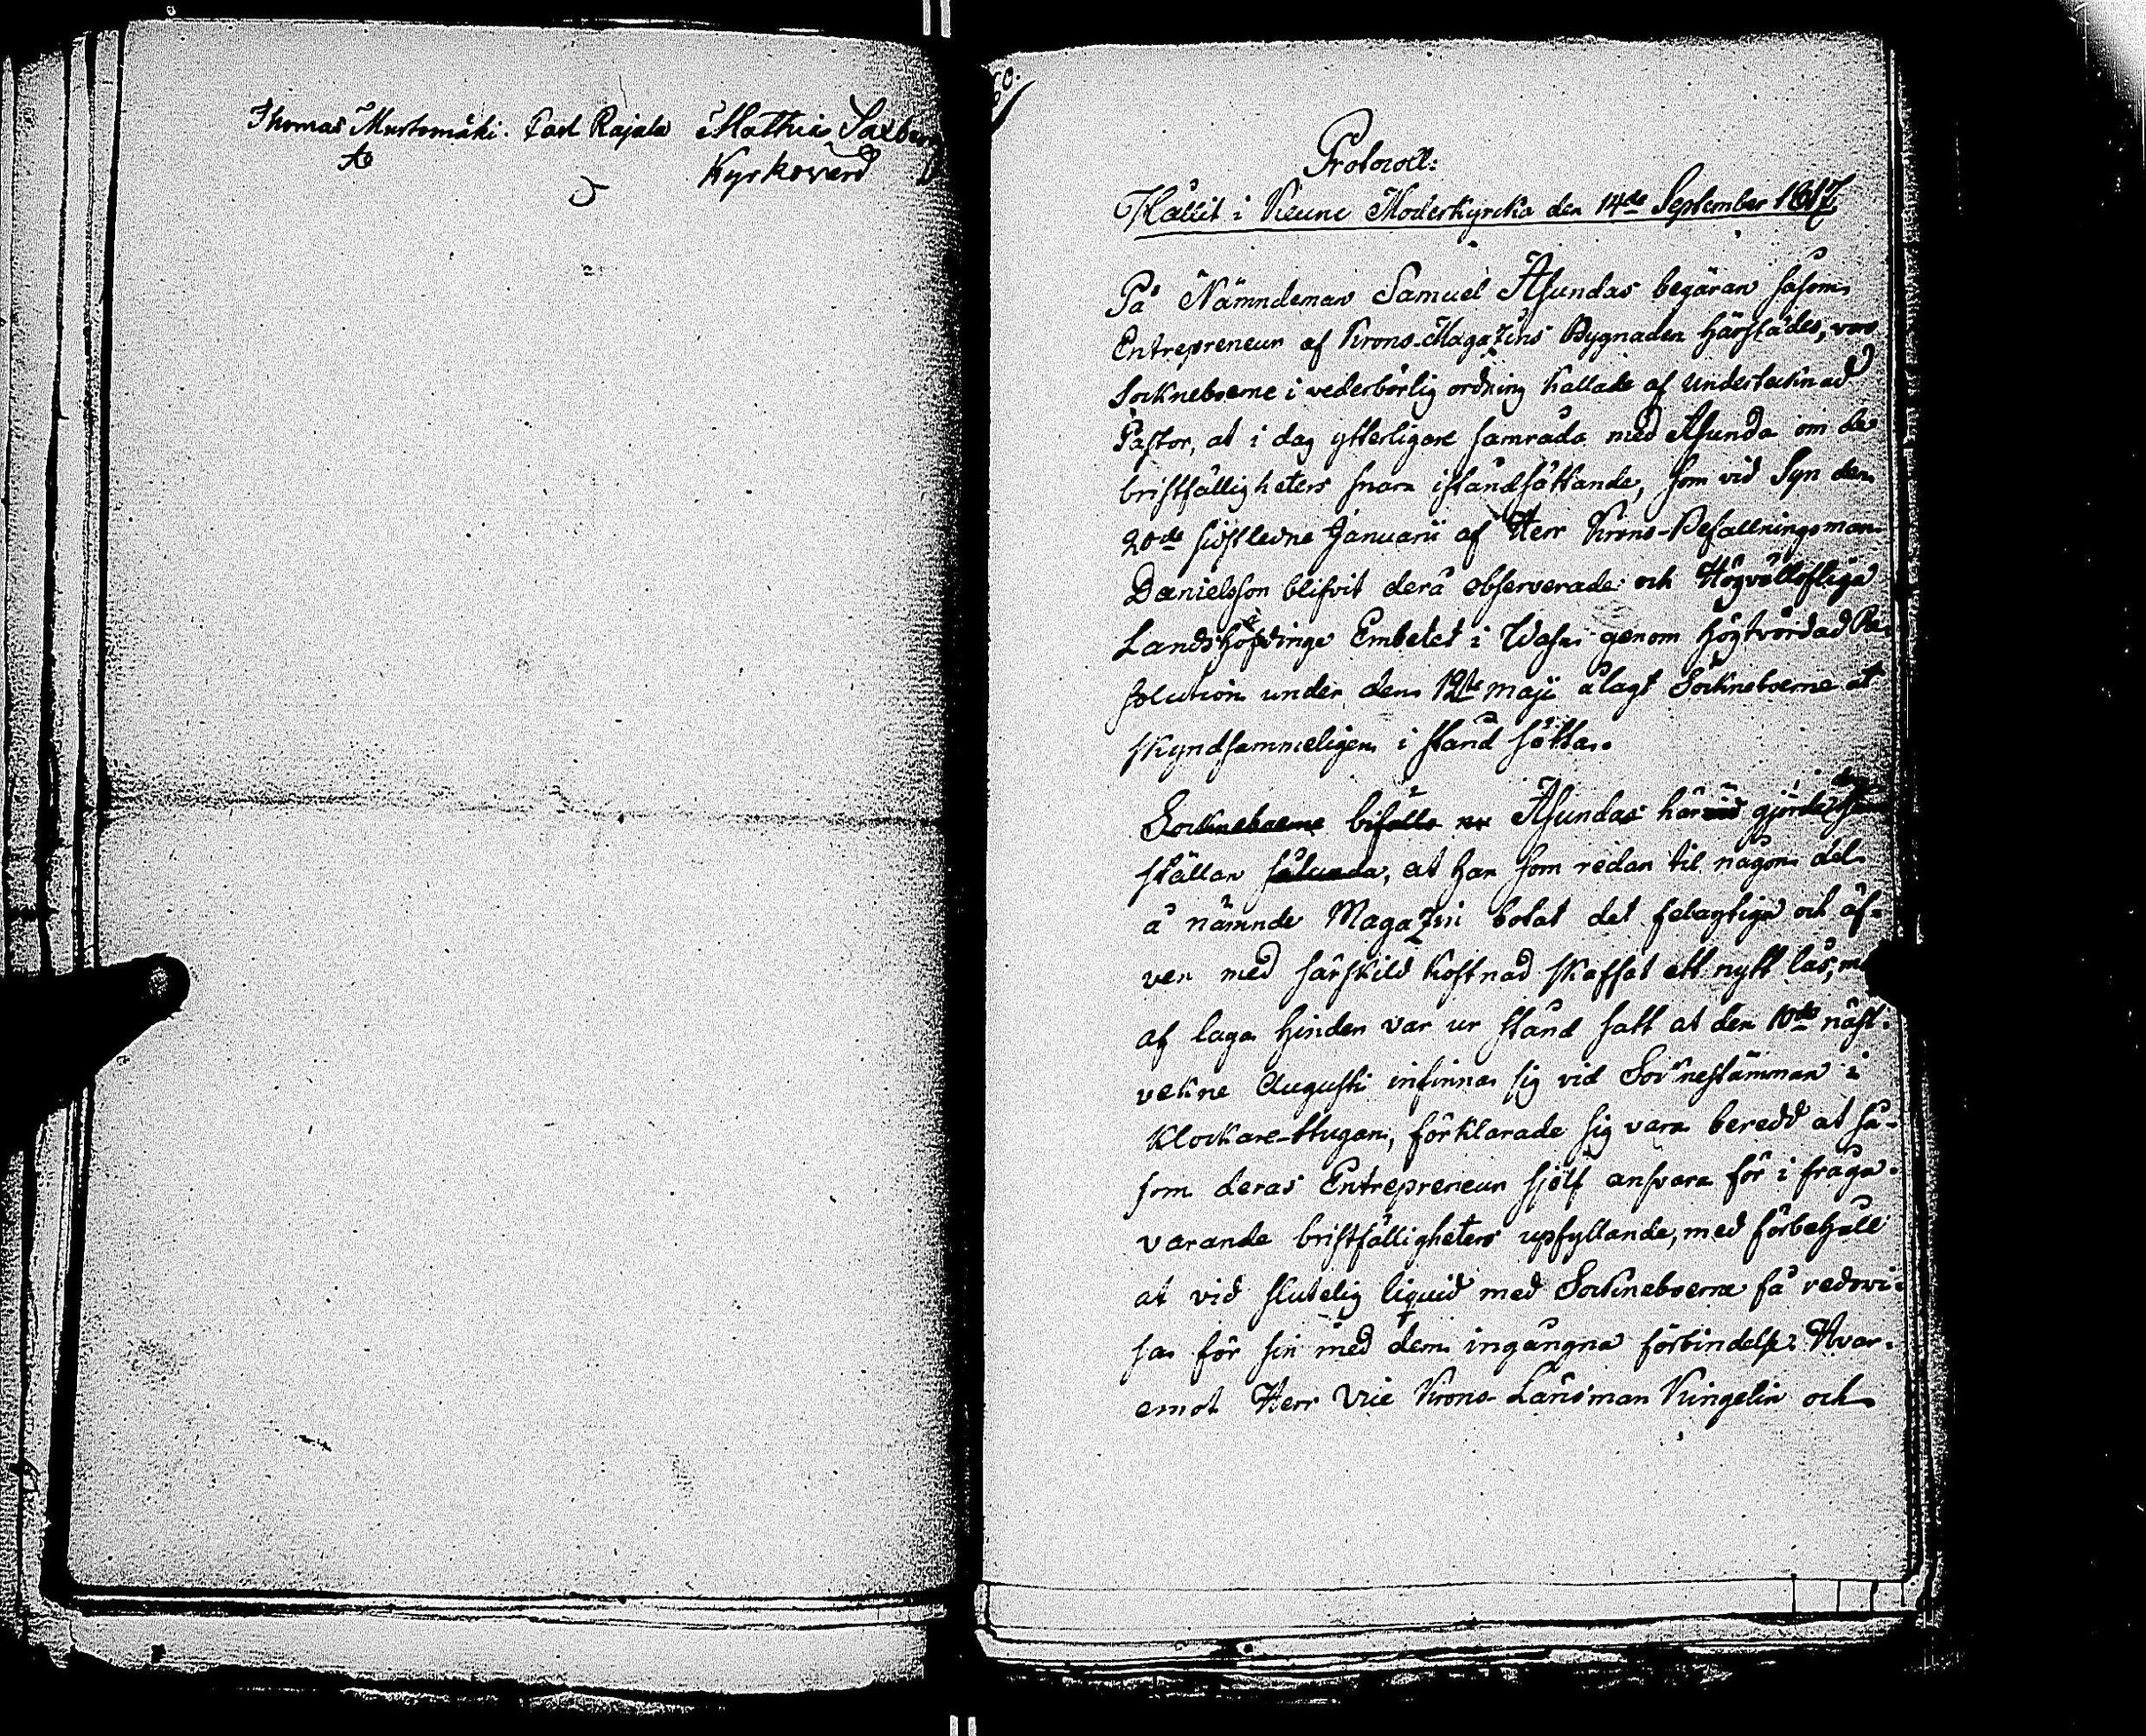 Thomas Murtomäki. Carl Rajala Mathias Saxberg
Kyrkovärd
Protocoll:
Hållit i Moderkyrcka den 14de September 1817
På Nämndeman Samuel Asundas begäran såsom
Entrepreneur af Krono-Magazins Bygnaden härstädes, voro
Sockneboerne i vederbörlig ordning kallade af undertecknad
Pastor, at i dag ytterligare samråda med Asunda om de
bristfälligheters snara iståndsättande, som vid Syn den
20de sidstledne Januarii af Herr Krono-Befallningsman
Danielsson blifvit derå observerade och Högvällofliga
Landshöfdinge Embetet i Wasa genom högtvördad Re-
solution under den 12te maji ålagt Sockneboerne at
skyndsammeligen i stånd sätta.
Sockneboerne bifalla Asundas härvid gjorde
ställan sålunda, at han som redan til någon del
å nämnde Magazin botat det felagtiga och äf-
ven med särskild kostnad skaffat ett nytt lås, m
af laga hinder var ur stånd satt at den 10de näst-
vekne Augusti infinna sig vid Socknestämman i
Klockare-stugan, förklarade sig vara beredd at så-
som deras Entrepreneur sjelf ansvara för i fråga
varande bristfälligheters upfyllande, med förbehåll
at vid slutelig liquid med Sockneboerne få redovi-
sa för sin med dem ingångna förbindelse. Hvar-
emot Herr Vice Krono-Länsman Kingelin och